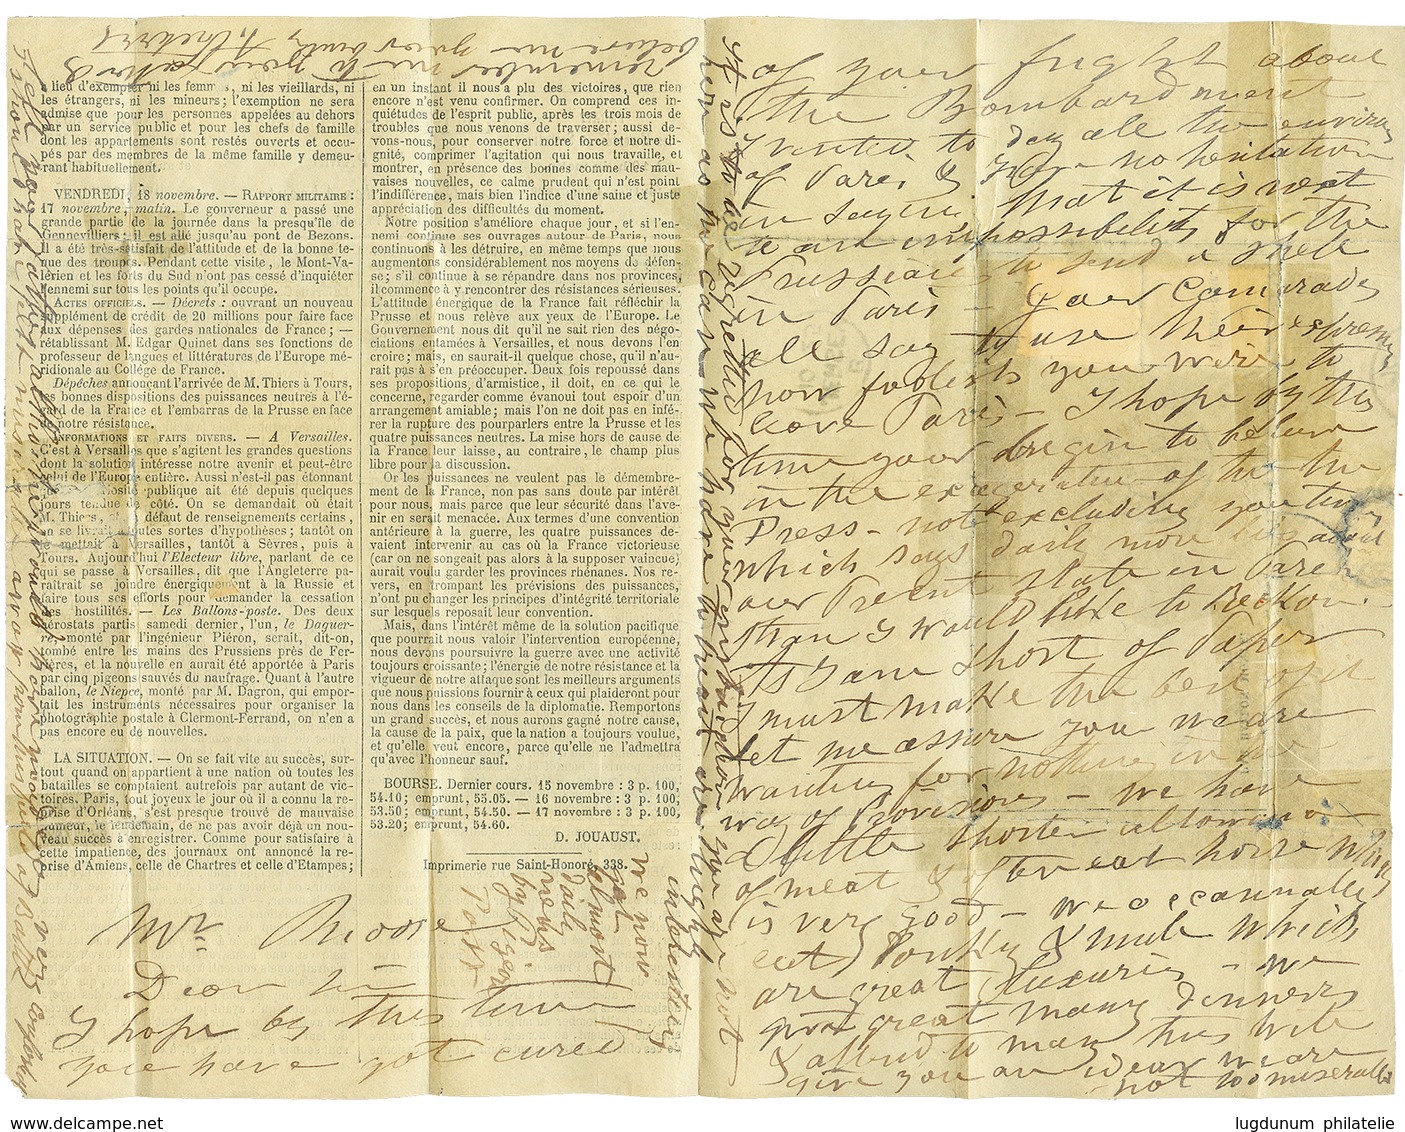 lieu d'exempter ni les femmes, ni les vieillards, ni
les étrangers, ni les mineurs; l'exemption ne sera
admise que pour les personnes appelées au dehors
par un service public et pour les chefs de famille
dont les appartements sont restés ouverts et occu-
pés par des membres de la même famille y demeu-
rant habituellement.
VENDREDI, 18 novembre. — RAPPORT MILITAIRE :
17 novembre, matin. Le gouverneur a passé une
grande partie de la journée dans la presqu'île de
Gennevilliers; il est allé jusqu'au pont de Bezons.
Il a été très-satisfait de l'attitude et de la bonne te-
nue des troupes. Pendant cette visite, le Mont-Va-
lérien et les forts du Sud n'ont pas cessé d'inquiéter
l'ennemi sur tous les points qu'il occupe.
ACTES OFFICIELS. — Décrets : ouvrant un nouveau
supplément de crédit de 20 millions pour faire face
aux dépenses des gardes nationales de France; —
rétablissant M. Edgar Quinet dans ses fonctions de
professeur de langues et littératures de l'Europe mé-
ridionale au Collége de France.
Dépêches annonçant l'arrivée de M. Thiers à Tours,
les bonnes dispositions des puissances neutres à l'é-
gard de la France et l'embarras de la Prusse en face
de notre résistance.
INFORMATIONS ET FAITS DIVERS. — A Versailles.
C'est à Versailles que s'agitent les grandes questions
dont la solution intéresse notre avenir et peut-être
celui de l'Europe entière. Aussi n'est-il pas étonnant
publique ait été depuis quelques
jours tendue de côté. On se demandait où était
M. Thiers, défaut de renseignements certains,
on se livrait toutes sortes d'hypothèses; tantôt on
le mettait Versailles, tantôt à Sèvres, puis à
Tours. Aujourd'hui l'Electeur libre, parlant de ce
qui se passe à Versailles, dit que l'Angleterre pa-
raîtrait se joindre énergiquement à la Russie et
faire tous ses efforts pour demander la cessation
des hostilités. — Les Ballons-poste. Des deux
aérostats partis samedi dernier, l'un, le Daguer-
re, monté par l'ingénieur Piéron, serait, dit-on,
tombé entre les mains des Prussiens près de Fer-
rières, et la nouvelle en aurait été apportée à Paris
par cinq pigeons sauvés du naufrage. Quant à l'autre
ballon, le Niepce, monté par M. Dagron, qui empor-
tait les instruments nécessaires pour organiser la
photographie postale à Clermont-Ferrand, on n'en a
pas encore eu de nouvelles.
LA SITUATION. — On se fait vite au succès, sur-
tout quand on appartient à une nation où toutes les
batailles se comptaient autrefois par autant de vic-
toires. Paris, tout joyeux le jour où il a connu la re-
prise d'Orléans, s'est presque trouvé de mauvaise
humeur, le lendemain, de ne pas avoir déjà un nou-
veau succès à enregistrer. Comme pour satisfaire à
cette impatience, des journaux ont annoncé la re-
prise d'Amiens, celle de Chartres et celle d'Etampes;
en un instant il nous a plu des victoires, que rien
encore n'est venu confirmer. On comprend ces in-
quiétudes de l'esprit public, après les trois mois de
troubles que nous venons de traverser; aussi de-
vons-nous, pour conserver notre force et notre di-
gnité, comprimer l'agitation qui nous travaille, et
montrer, en présence des bonnes comme des mau-
vaises nouvelles, ce calme prudent qui n'est point
l'indifférence, mais bien l'indice d'une saine et juste
appréciation des difficultés du moment.
Notre position s'améliore chaque jour, et si l'en-
nemi continue ses ouvrages autour de Paris, nous
continuons à les détruire, en même temps que nous
augmentons considérablement nos moyens de défen-
ses; s'il continue à se répandre dans nos provinces,
il commence à y rencontrer des résistances sérieuses.
L'attitude énergique de la France fait réfléchir la
Prusse et nous relève aux yeux de l'Europe. Le
Gouvernement nous dit qu'il ne sait rien des négo-
ciations entamées à Versailles, et nous devons l'en
croire; mais, en saurait-il quelque chose, qu'il n'au-
rait pas à s'en préoccuper. Deux fois repoussé dans
ses propositions, d'armistice, il doit, en ce qui le
concerne, regarder comme évanoui tout espoir d'un
arrangement amiable; mais l'on ne doit pas en infé-
rer la rupture des pourparlers entre la Prusse et les
quatre puissances neutres. La mise hors de cause de
la France leur laisse, au contraire, le champ plus
libre pour la discussion.
Or les puissances ne veulent pas le démembre-
ment de la France, non pas sans doute par intérêt
pour nous, mais parce que leur sécurité dans l'ave-
nir en serait menacée. Aux termes d'une convention
antérieure à la guerre, les quatre puissances de-
vaient intervenir au cas où la France victorieuse
(car on ne songeait pas alors à la supposer vaincue)
aurait voulu garder les provinces rhénanes. Nos re-
vers, en trompant les prévisions des puissances,
n'ont pu changer les principes d'intégrité territoriale
sur lesquels reposait leur convention.
Mais, dans l'intérêt même de la solution pacifique
que pourrait nous valoir l'intervention européenne,
nous devons poursuivre la guerre avec une activité
toujours croissante; l'énergie de notre résistance et la
vigueur de notre attaque sont les meilleurs arguments
que nous puissions fournir à ceux qui plaideront pour
nous dans les conseils de la diplomatie. Remportons
un grand succès, et nous aurons gagné notre cause,
la cause de la paix, que la nation a toujours voulue,
et qu'elle veut encore, parce qu'elle ne l'admettra
qu'avec l'honneur sauf.
BOURSE. Dernier cours. 15 novembre : 3 p. 100,
54.10; emprunt, 55.05. — 16 novembre : 3 p. 100,
53.50; emprunt, 54.50. — 17 novembre : 3 p. 100,
53.20; emprunt, 54.60.
D. JOUAUST.
Imprimerie rue Saint-Honoré, 338.
Mr. Moore
Dear Sir
I hope by this time
you have got cured
of your fright about
the Bombardment
I visited to day all the environs
of Paris & I have no hesitation
in saying that it is next
to an impossibility for the
Prussians to send a shell
in Paris — your Comrades
all say to use their expression
how foolish you were to
leave Paris — I hope by this
time you begin to believe
in the exageration of the
Press — not excluding
which says daily more lies about
our Present state in Paris
than I would like to Reckon.
As I am short of Paper
I must make the best of it
let me assure you we are
wanting for nothing in the
way of Provisions — we have
a little shorter allowance
of meat & often eat horse which
is very good — we occasionally
eat Donkey & mule which
are great luxuries — we
give great many dinners
& attend to many this will
give you an idear we are
not too miserable
It is to be regretted for your
here as we can
we now
get
almost
daily
news
by Pigeon
Post
remember me to
believe me yours truly